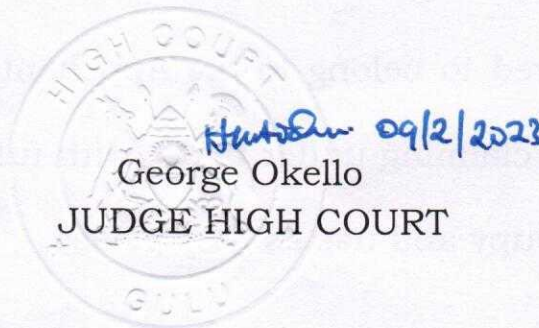 HIGH COURT
09/2/2023
George Okello
JUDGE HIGH COURT
GULU